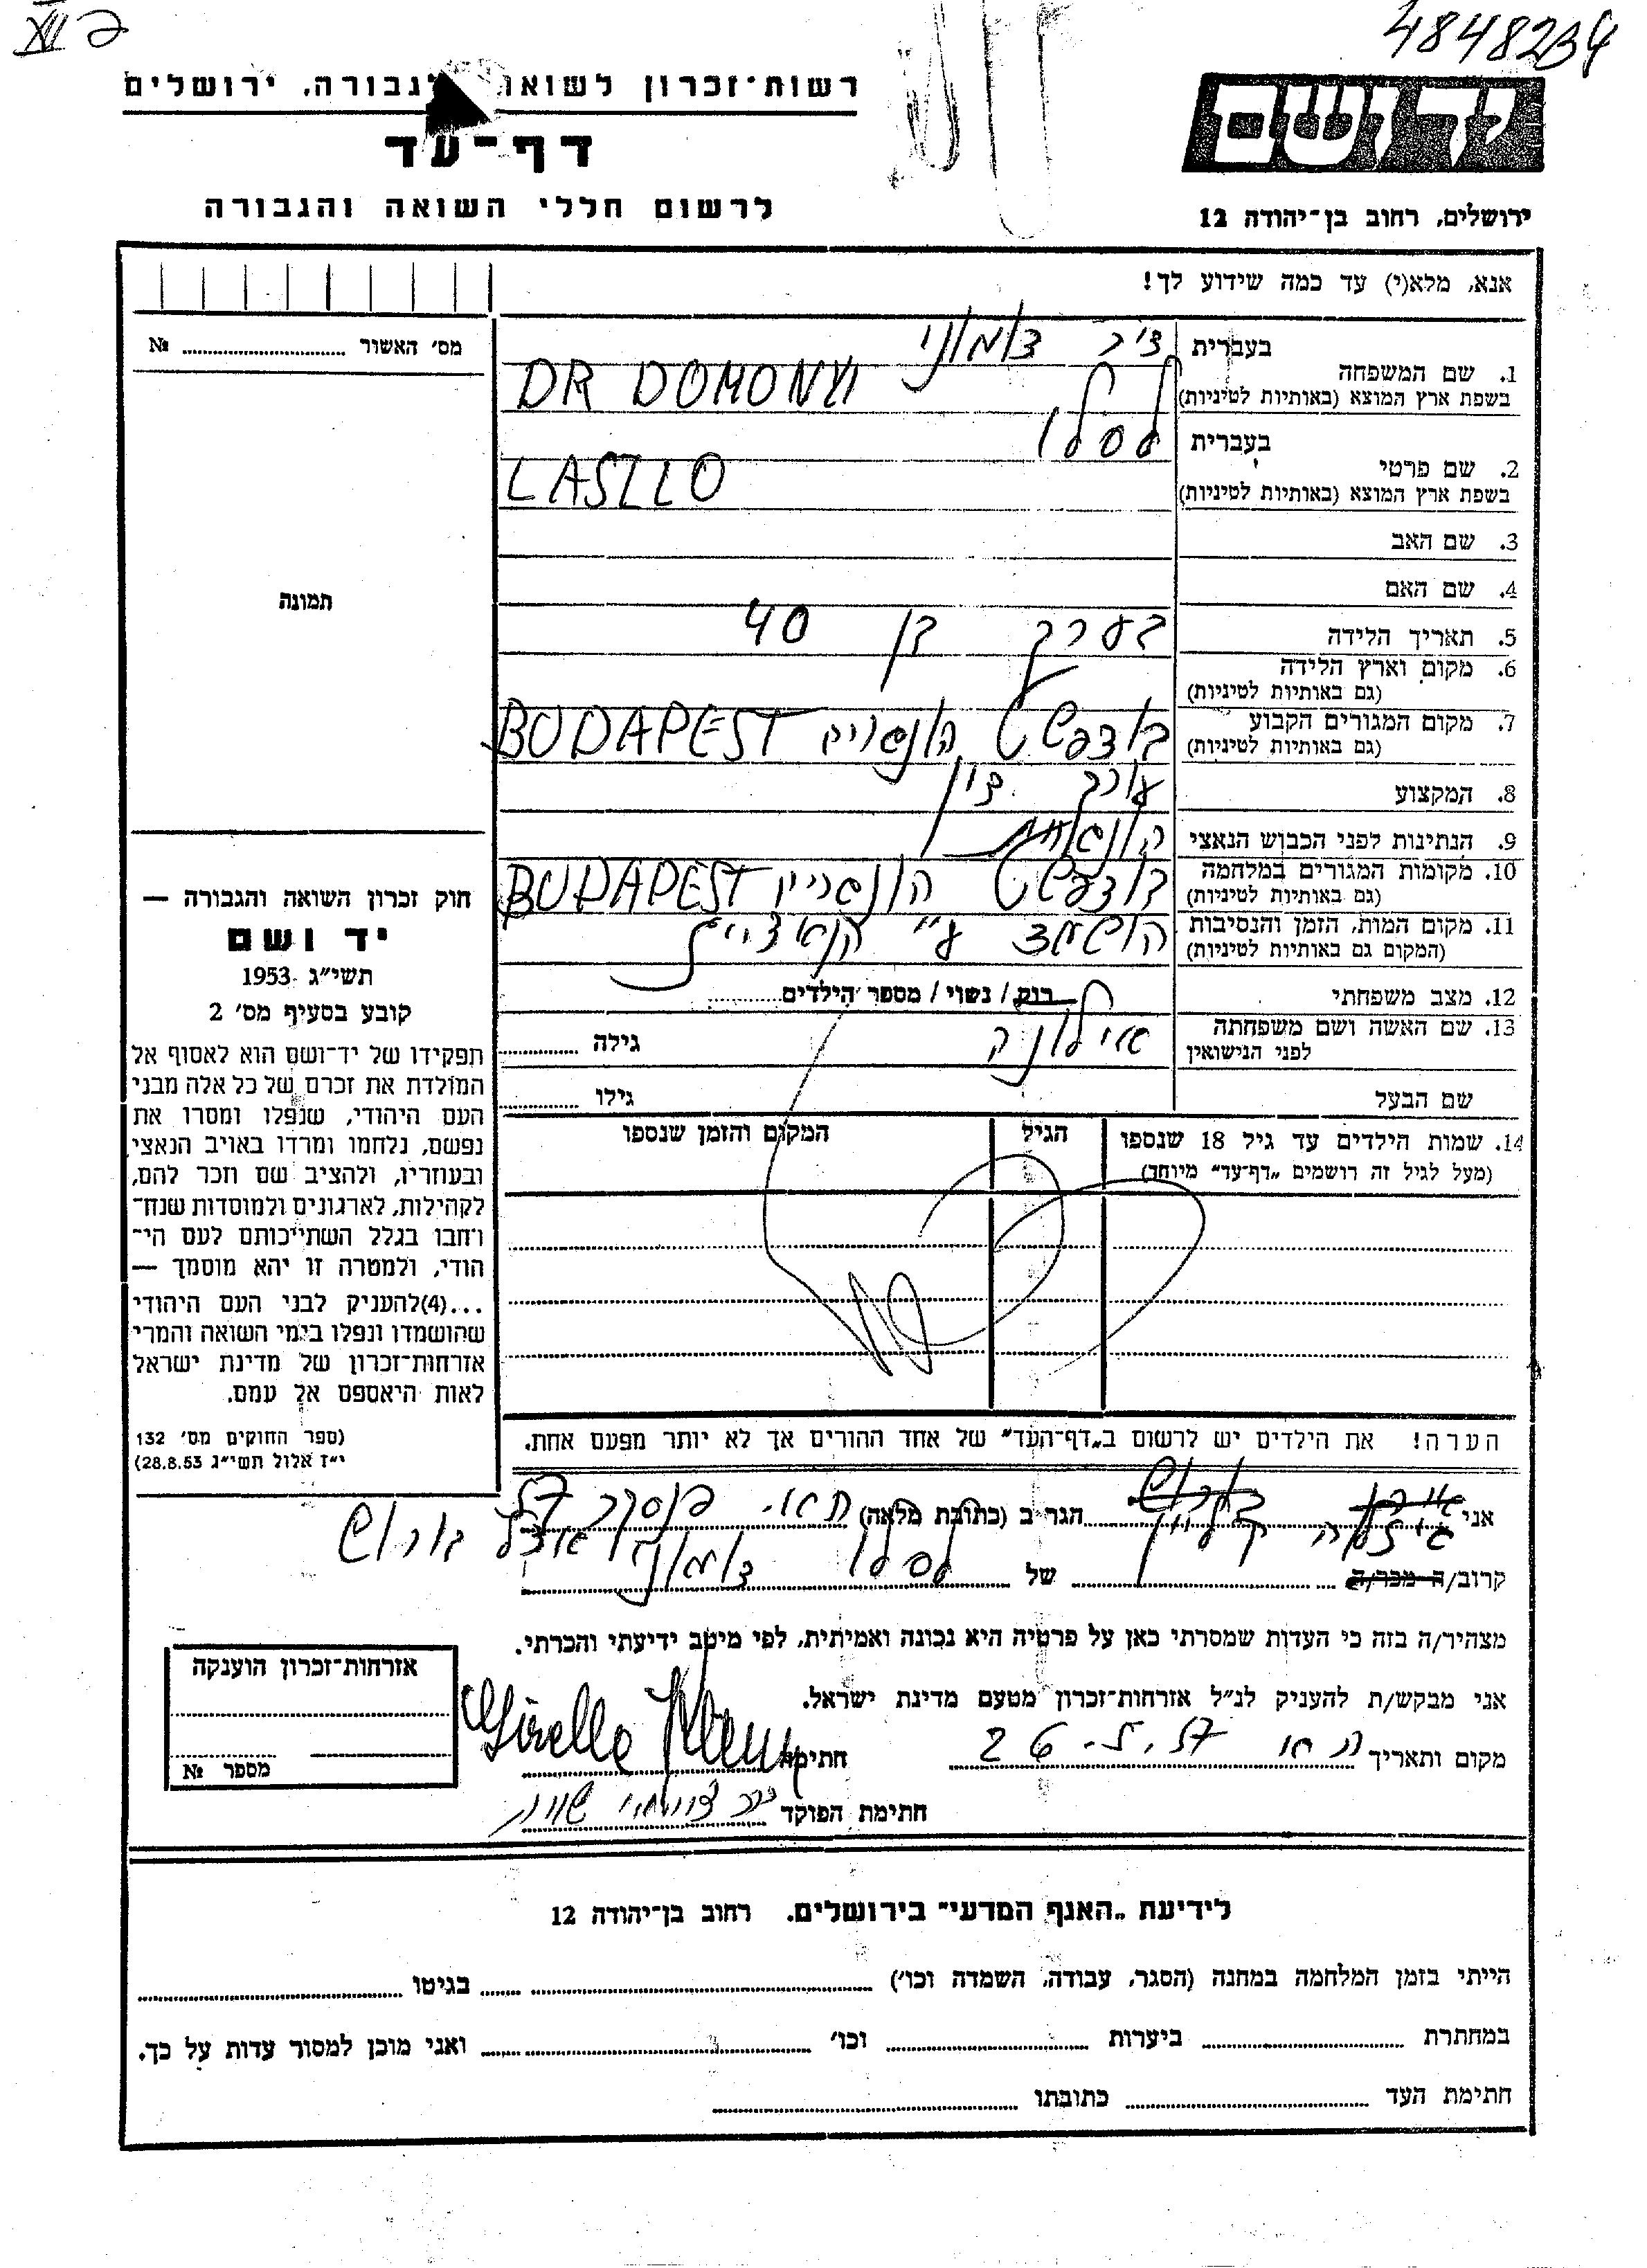 4848234
XII ב
יד ושם
רשות־זכרון לשואה ולגבורה, ירושלים
דף־עד
לרשום חללי השואה והגבורה
ירושלים, רחוב בן־יהודה 12
אנא, מלא(י) עד כמה שידוע לך!
מס׳ האשור № 
תמונה
1. שם המשפחה בעברית ד״ר דומוני
בשפת ארץ המוצא (באותיות לטיניות) DR DOMONYI
2. שם פרטי בעברית לסלו
בשפת ארץ המוצא (באותיות לטיניות) LASZLO
3. שם האב
4. שם האם
5. תאריך הלידה בערך בן 40
6. מקום וארץ הלידה
(גם באותיות לטיניות)
7. מקום המגורים הקבוע בודפשט הונגריה BUDAPEST
(גם באותיות לטיניות)
8. המקצוע עורך דין
9. הנתינות לפני הכבוש הנאצי הונגרית
10. מקומות המגורים במלחמה בודפשט הונגריה BUDAPEST
(גם באותיות לטיניות)
11. מקום המות, הזמן והנסיבות הושמד ע״י הנאצים
(המקום גם באותיות לטיניות)
12. מצב משפחתי רוק / נשוי / מספר הילדים
13. שם האשה ושם משפחתה אילונה גילה
לפני הנישואין
שם הבעל גילו
14. שמות הילדים עד גיל 18 שנספו הגיל המקום והזמן שנספו
(מעל לגיל זה רושמים „דף־עד״ מיוחד)
הערה! את הילדים יש לרשום ב„דף־העד״ של אחד ההורים אך לא יותר מפעם אחת.
חוק זכרון השואה והגבורה —
יד ושם
תשי״ג 1953
קובע בסעיף מס׳ 2
תפקידו של יד־ושם הוא לאסוף אל
המולדת את זכרם של כל אלה מבני
העם היהודי, שנפלו ומסרו את
נפשם, נלחמו ומרדו באויב הנאצי
ובעוזריו, ולהציב שם וזכר להם,
לקהילות, לארגונים ולמוסדות שנח־
רבו בגלל השתייכותם לעם הי־
הודי, ולמטרה זו יהא מוסמך —
...(4)להעניק לבני העם היהודי
שהושמדו ונפלו בימי השואה והמרי
אזרחות־זכרון של מדינת ישראל
לאות היאספם אל עמם.
(ספר החוקים מס׳ 132
י״ז אלול תשי״ג 28.8.53)
אני גיזלה קליין הגר ב (כתובת מלאה)
קרוב/ה מכר/ה של לסלו דומוני
מצהיר/ה בזה כי העדות שמסרתי כאן על פרטיה היא נכונה ואמיתית, לפי מיטב ידיעתי והכרתי.
אני מבקש/ת להעניק לנ״ל אזרחות־זכרון מטעם מדינת ישראל.
מקום ותאריך חתימה Giselle Klein
חתימת הפוקד
אזרחות־זכרון הוענקה
מספר №
לידיעת „האגף המדעי״ בירושלים. רחוב בן־יהודה 12
הייתי בזמן המלחמה במחנה (הסגר, עבודה, השמדה וכו׳) בגיטו
במחתרת ביערות וכו׳ ואני מוכן למסור עדות על כך.
חתימת העד כתובתו